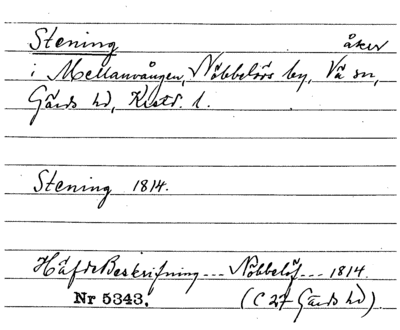 Stening åker
i Mellanvången, Nöbbelövs by, Vä sn,
Gärds hd, Krist. l.
Stening 1814.
HäfdeBeskrifning --- Nöbbelöf --- 1814.
Nr 5343. (C 27 Gärds hd)